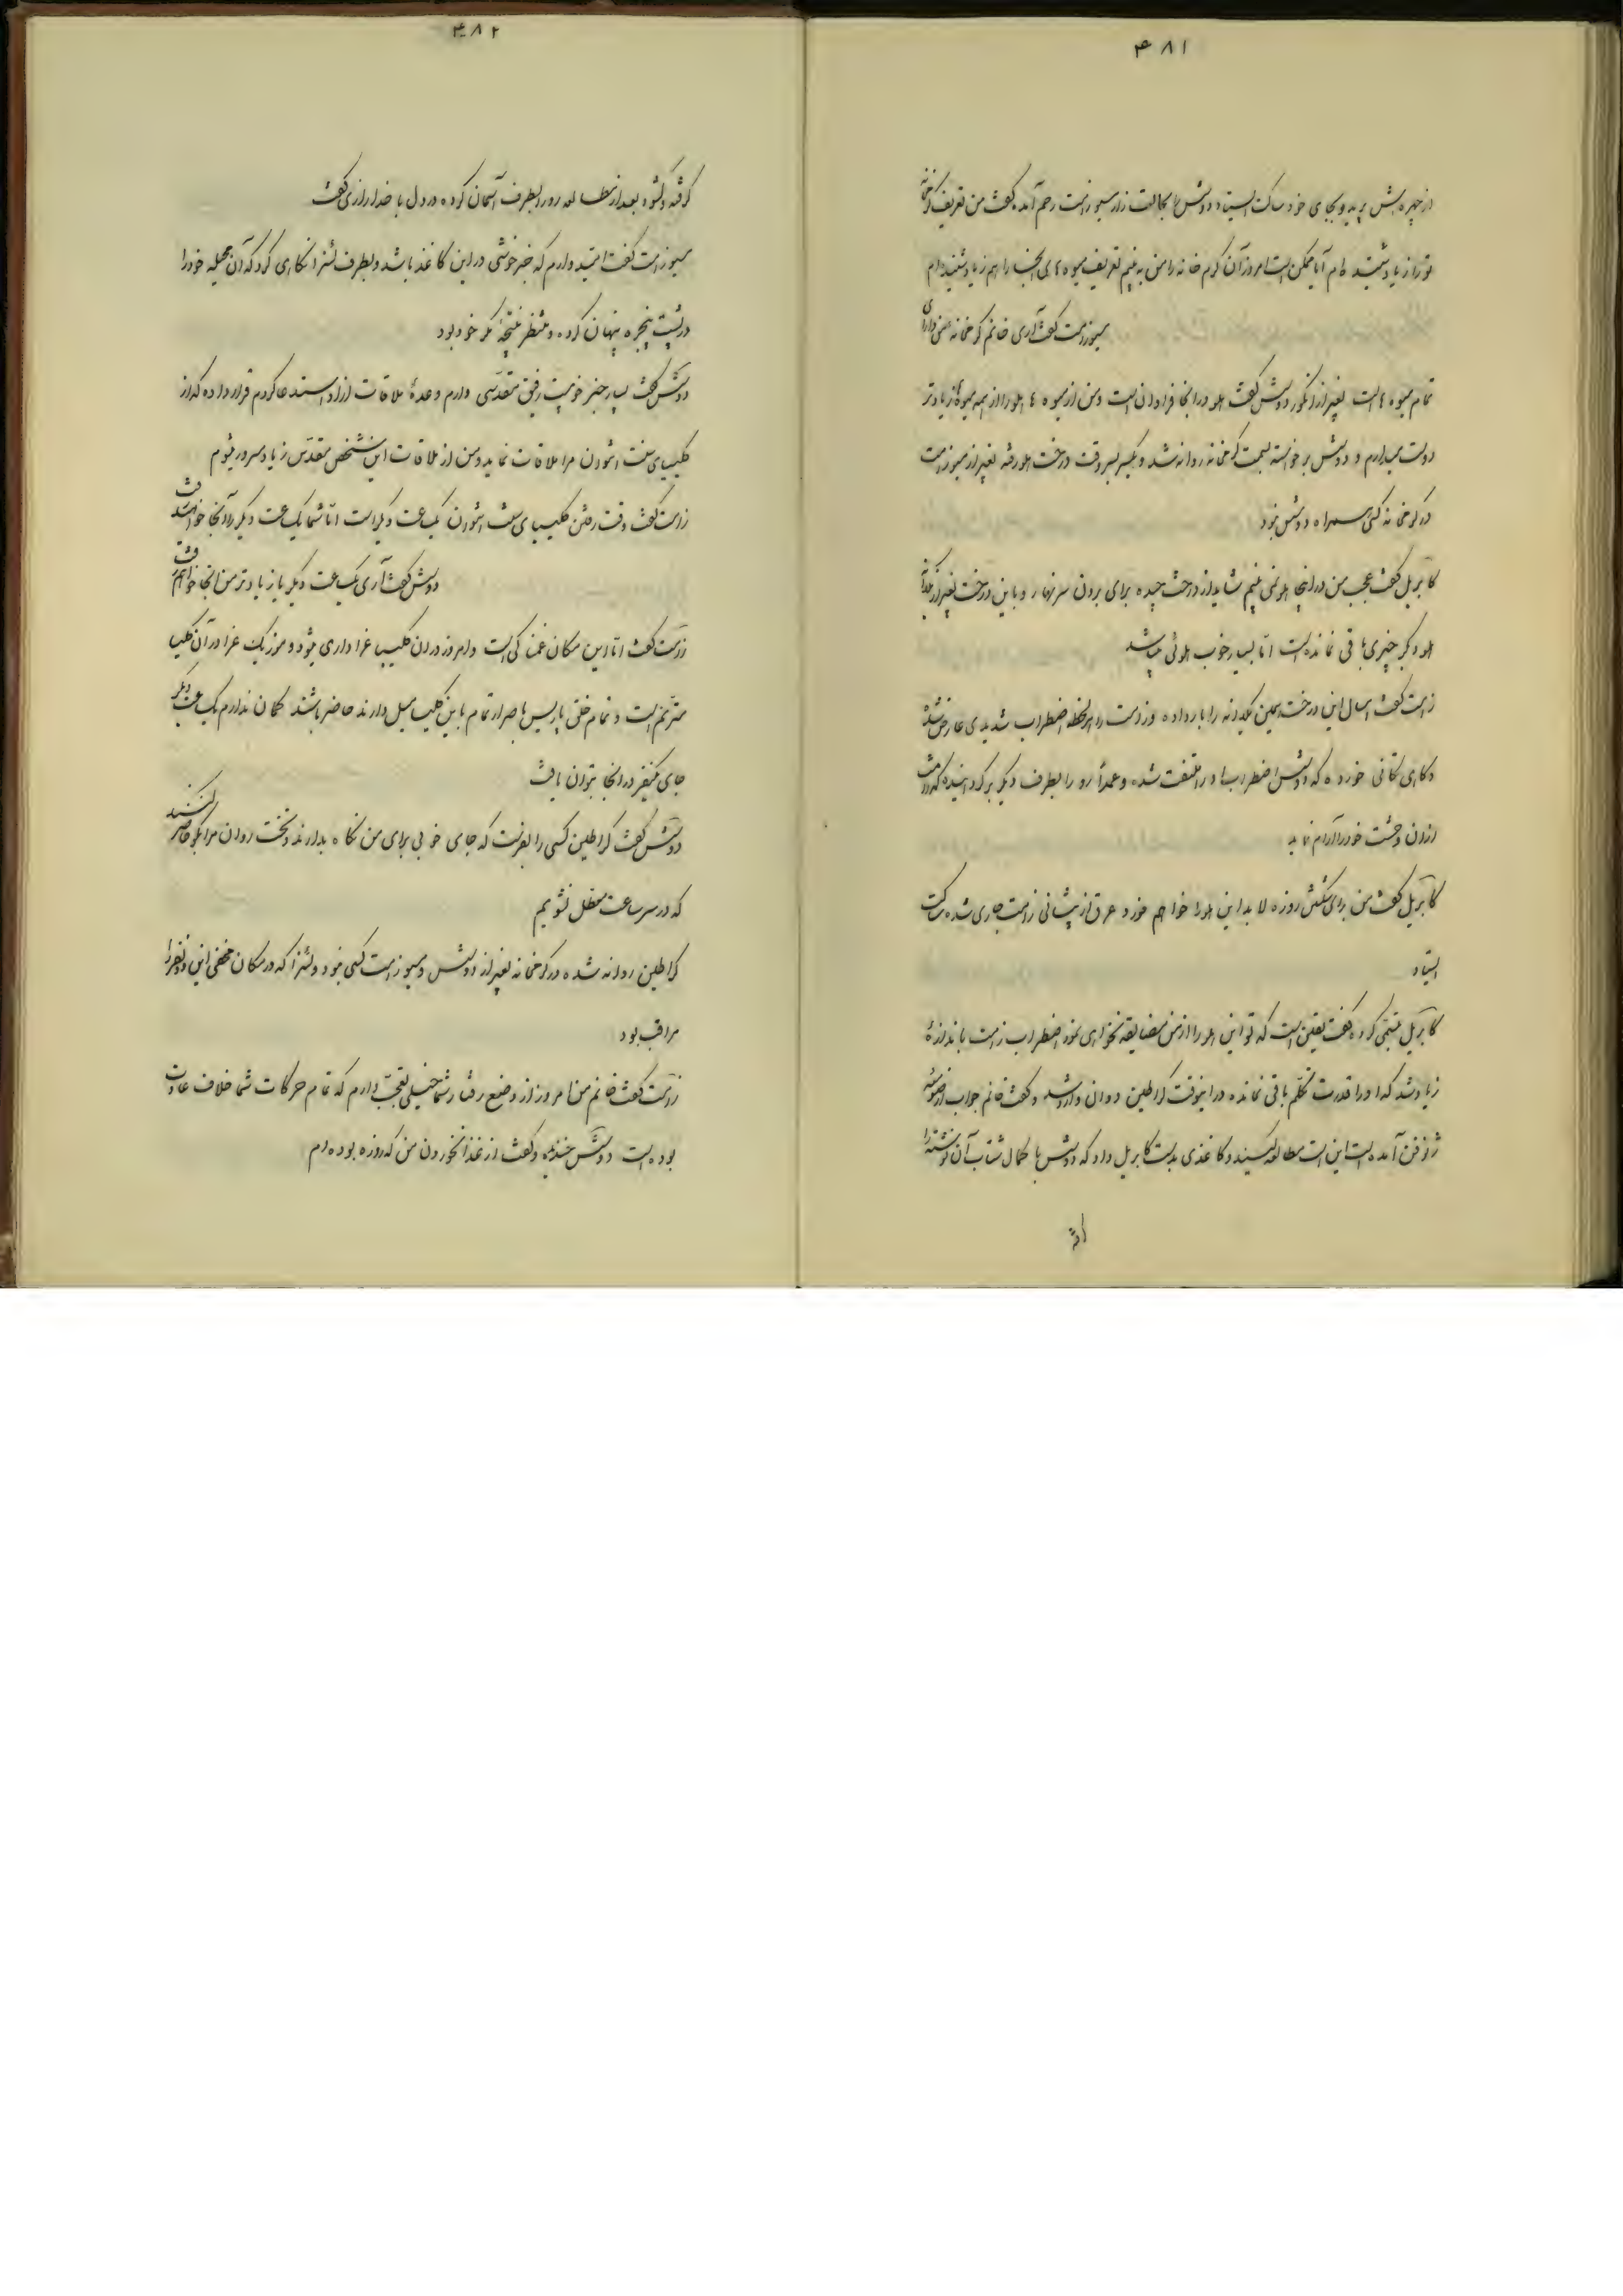 ۴۸۱
از چهره‌اش پرید و بجای خود ساکت ایستاد دوشس را بحالت زار مسیو زامت رحم آمده گفت من تعریف گرمخانه
تو را زیاد شنیده‌ام آیا ممکن است امروز آن گرم خانه را من به بینم تعریف میوه‌های آنجا را هم زیاد شنیده‌ام
مسیو زامت گفت آری خانم گرمخانه من دارای
تمام میوه‌ها است بغیر از انگور دوشس گفت هلو در اینجا فراوان است و من از میوه‌ها هلو را از همه میوه‌ها زیادتر
دوست میدارم و دوشس برخواسته بسمت گرمخانه روانه شد و یکسر بسر وقت درخت هلو رفته بغیر از مسیو زامت
در گرمخانه کسی همراه دوشس نبود
گابریل گفت عجب من در اینجا هلو نمی بینم شاید از درخت چیده برای بردن سر نهار و باین درخت بغیر از یکدانه
هلو دیگر چیزی باقی نمانده است اما بسیار خوب هلوئی میباشد
زامت گفت امسال این درخت همین یکدانه را بار داده و زامت را هر لحظه اضطراب شدیدی عارض شده
و کاری تکانی خورده که دوشس اضطراب او را ملتفت شده و عمداً رو را بطرف دیگر برگردانیده که زامت
از آن وحشت خود را آرام نماید
گابریل گفت من برای شکستن روزه لابد این هلو را خواهم خورد عرق از پیشانی زامت جاری شده ساکت
ایستاد
گابریل تبسمی کرده گفت یقین است که تو این هلو را از من مضایقه نخواهی نمود اضطراب زامت باندازهٔ
زیاد شد که او را قدرت تکلم باقی نمانده در اینوقت گراطین دوان وارد شد و گفت خانم جواب از حضور
ژزفن آمده است این است مطالعه کنید و کاغذی بدست گابریل داد که دوشس با کمال شتاب آن نوشته را
گرفته
۴۸۲
گرفته و گشوده بعد از مطالعه رو را بطرف آسمان کرده در دل با خدا رازی گفت
مسیو زامت گفت امید دارم که خبر خوشی در این کاغذ باشد و بطرف لئنرا نگاهی کرد که آن محیله خود را
در پشت پنجره پنهان کرده و منتظر نتیجهٔ مکر خود بود
دوشس گفت بسیار خبر خوبیست رفیق مقدسی دارم وعدهٔ ملاقات از او استدعا کردم قرار داده که در
کلیسای سنت انتوان مرا ملاقات نماید و من از ملاقات این شخص مقدس زیاد مسرور میشوم
زامت گفت وقت رفتن کلیسای سنت انتوان یکساعت دیگر است اما شما یکساعت دیگر در آنجا خواهید رفت
دوشس گفت آری یکساعت دیگر یا زیادتر من آنجا خواهم رفت
زامت گفت اما این مکان غمناکی است و امروز در آن کلیسا عزاداری میشود و موزیک عزا در آن کلیسا
مترنم است و تمام خلق پاریس باصرار تمام باین کلیسا میل دارند حاضر باشند گمان ندارم یکساعت دیگر
جای یکنفر در آنجا بتوان یافت
دوشس گفت گراطین کسی را بفرست که جای خوبی برای من نگاه بدارند و تخت روان مرا بگو حاضر کنند
که در سر ساعت معطل نشویم
گراطین روانه شده در گرمخانه بغیر از دوشس و مسیو زامت کسی نبود و لئنرا که در مکان مخفی این دو نفر را
مراقب بود
زامت گفت خانم من امروز از وضع رفتار شما خیلی تعجب دارم که تمام حرکات شما خلاف عادت
بوده است دوشس خندیده و گفت از غذا نخوردن من که روزه بوده‌ام